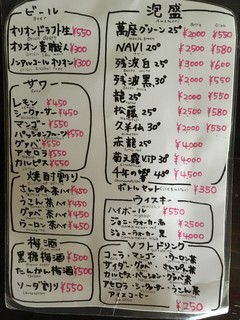 ビール
オリオンドラフト生 ¥550
オリオン麦職人 ¥300
ノンアルコールオリオン ¥300
サワー
レモン ¥450
シークヮーサー ¥450
マンゴー ¥450
パッションフルーツ ¥450
グァバ ¥450
アセロラ ¥450
カルピス ¥450
焼酎割り
さんぴん茶ハイ ¥450
うこん茶ハイ ¥450
グァバ茶ハイ ¥450
ウーロン茶ハイ ¥450
梅酒
黒糖梅酒 ¥500
たんかん梅酒 ¥500
ソーダ割り ¥550
泡盛
萬座グリーン 25° ¥2000 ¥550
NAVI 25° ¥2000 ¥580
残波白 25° ¥3000 ¥600
残波黒 30° ¥550
龍 25° ¥2000 ¥550
松藤 25° ¥2000 ¥580
久米仙 30° ¥2000 ¥580
赤龍 25° ¥4000
菊之露VIP 30° ¥4000
千年の響 43° ¥4500
ボトルセット ¥350
ウィスキー
ハイボール ¥550
ジョニーウォーカー赤 ¥2500
ジョニーウォーカー黒 ¥4000
ソフトドリンク
コーラ・マンゴー・ウーロン茶
カルピス・
アセロラ・シークヮーサー・うこん茶
アイスコーヒー
¥250